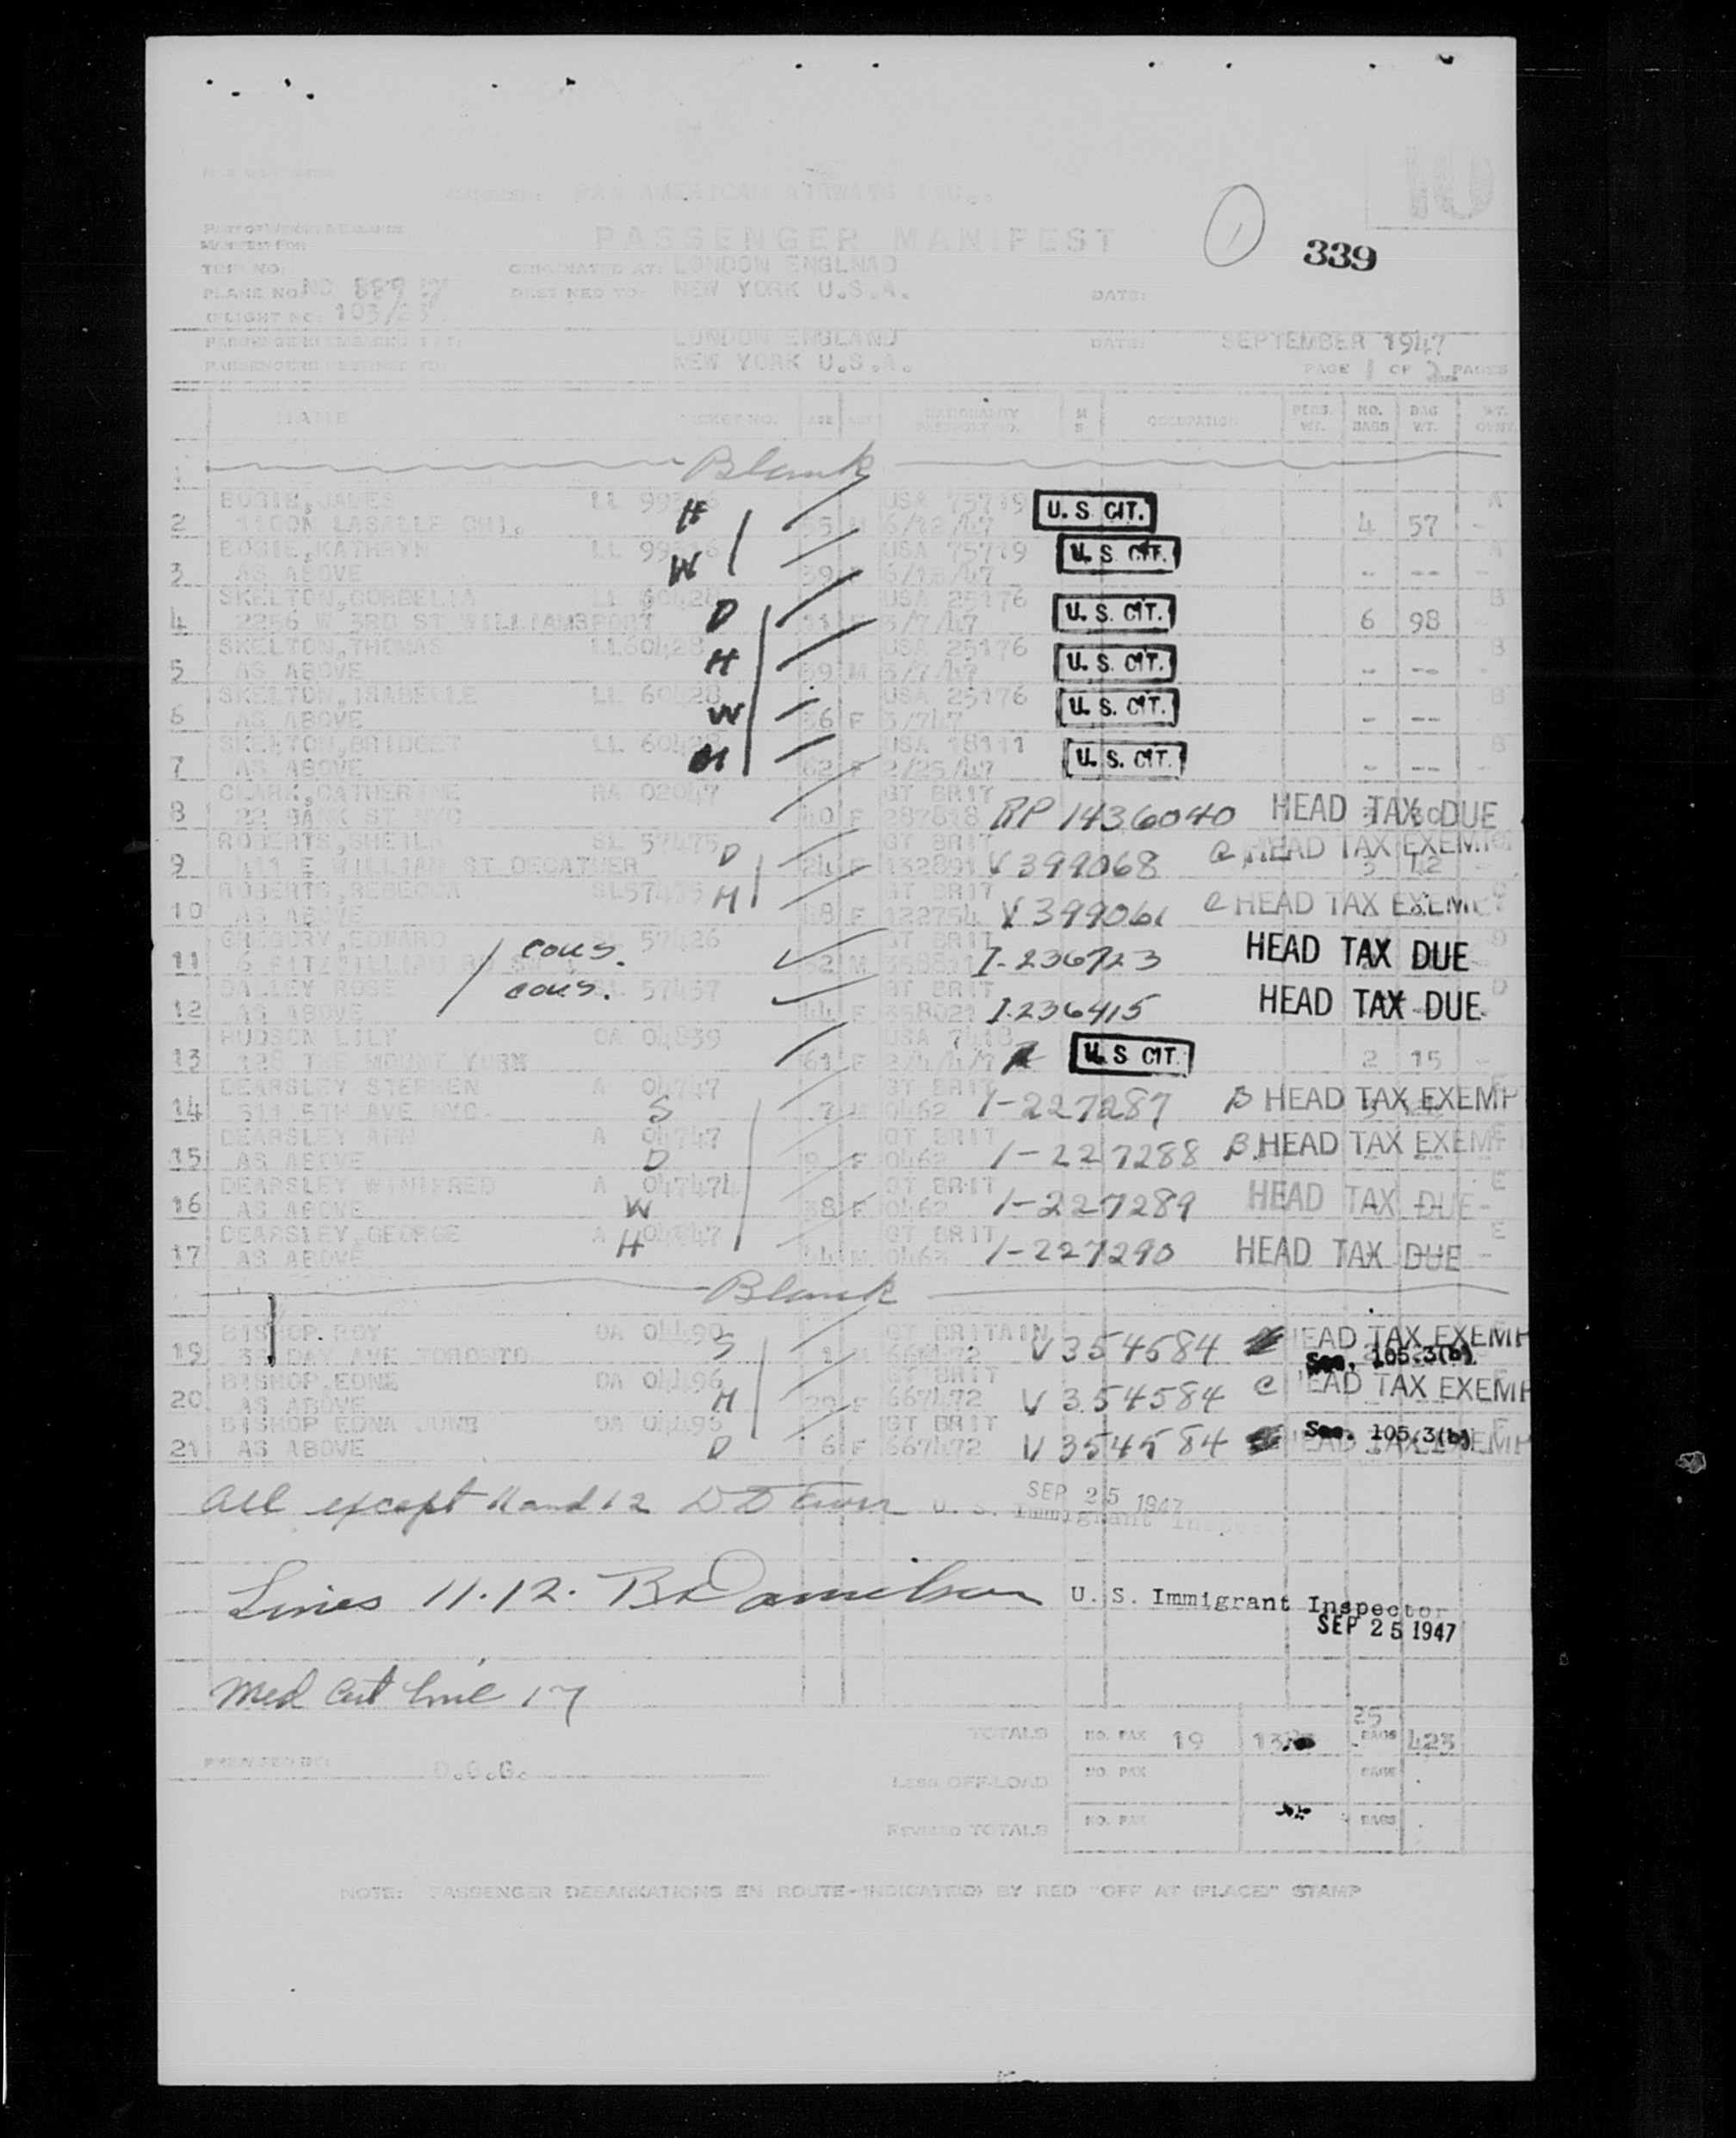 10
PAN AMERICAN AIRWAYS INC..
PASSENGER MANIFEST
1
339
TRIP NO:
ORIGINATED AT: LONDON ENGLNAD
PLANE NO: NC
DESTINED TO: NEW YORK U.S.A.
DATE:
FLIGHT NO: 103/23
LONDON ENGLAND
DATE: SEPTEMBER 1947
NEW YORK U.S.A.
PAGE 1 OF 2 PAGES
NAME TICKET NO. AGE SEX NATIONALITY PASSPORT NO. OCCUPATION PERS. WT. NO. BAGS BAG WT.
1 Blank
BOGIE, JAMES LL USA 75719 U. S. CIT. A
2 H 55 M 6/12/47 4 57 -
BOGIE, KATHRYN LL USA 75719 U. S. CIT. A
3 AS ABOVE W 39 -- --- -
SKELTON, CORDELIA LL 60428 USA 25176 U. S. CIT. B
4 2256 W 3RD ST WILLIAMSPORT D 11 F 3/7/47 6 98
SKELTON, THOMAS LL60428 USA 25176 U. S. CIT. B
5 AS ABOVE H 39 M 3/7/47 -- --- -
SKELTON, ISABELLE LL 60428 USA 25176 U. S. CIT. B
6 AS ABOVE W 36 F 3/7/47 -- ---
SKELTON, BRIDGET LL 60428 USA 18111 U. S. CIT. B
7 AS ABOVE M 62 F 2/25/47 -- --- -
CLARK, CATHERINE RA 02047 GT BRIT
8 22 BANK ST NYC 40 F 287818 RP 1436040 HEAD TAX DUE
ROBERTS, SHEILA SL 57475 GT BRIT
9 411 E WILLIAM ST DECATUER D 24 F 132891 V 399068 C HEAD TAX EXEMPT
ROBERTS, REBECCA SL57475 GT BRIT
10 AS ABOVE M 48 F 122754 V 399061 C HEAD TAX EXEMPT
GREGORY, EDWARD cous. SL 57426 GT BRIT D
11 52 M I-236723 HEAD TAX DUE
DALLEY ROSE cous. SL 57437 GT BRIT D
12 AS ABOVE 44 F I-236415 HEAD TAX DUE
HUDSON LILY OA 04839 USA 7418
13 128 THE MOUNT YORK 61 F U. S CIT. 2 15 -
DEARSLEY STEPHEN A 04747 GT BRIT
14 511 5TH AVE NYC S 7 M 0462 I-227287 B HEAD TAX EXEMP
DEARSLEY ANN A 04747 GT BRIT
15 AS ABOVE D 9 F 0462 I-227288 B HEAD TAX EXEMP
DEARSLEY WINIFRED A 047474 GT BRIT E
16 AS ABOVE W 38 F 0462 I-227289 HEAD TAX DUE
DEARSLEY, GEORGE A 04747 GT BRIT E
17 AS ABOVE H 44 M 0463 I-227290 HEAD TAX DUE
Blank
BISHOP. ROY OA 04490 GT BRITAIN
19 DAY AVE TORONTO S 1 M 667472 V 354584 HEAD TAX EXEMP
Sec. 105.3(b)
BISHOP, EDNE OA 04496 GT BRIT
20 AS ABOVE M 29 F 667472 V 354584 C HEAD TAX EXEMP
BISHOP EDNA JUNE OA 04495 GT BRIT Sec. 105.3(b)
21 AS ABOVE D 6 F 667472 V 354584 HEAD TAX EXEMP
All except 11 and 12 SEP 25 1947
U. S. Immigrant Inspector
Lines 11.12. B Danielson U. S. Immigrant Inspector
SEP 25 1947
Med Cert line 17
25
TOTALS NO. PAX 19 BAGS 423
PREPARED BY: D.G.G.
LESS OFF-LOAD NO. PAX BAGS
REVISED TOTALS NO. PAX BAGS
NOTE: PASSENGER DEBARKATIONS EN ROUTE-INDICATED BY RED "OFF AT (PLACE)" STAMP